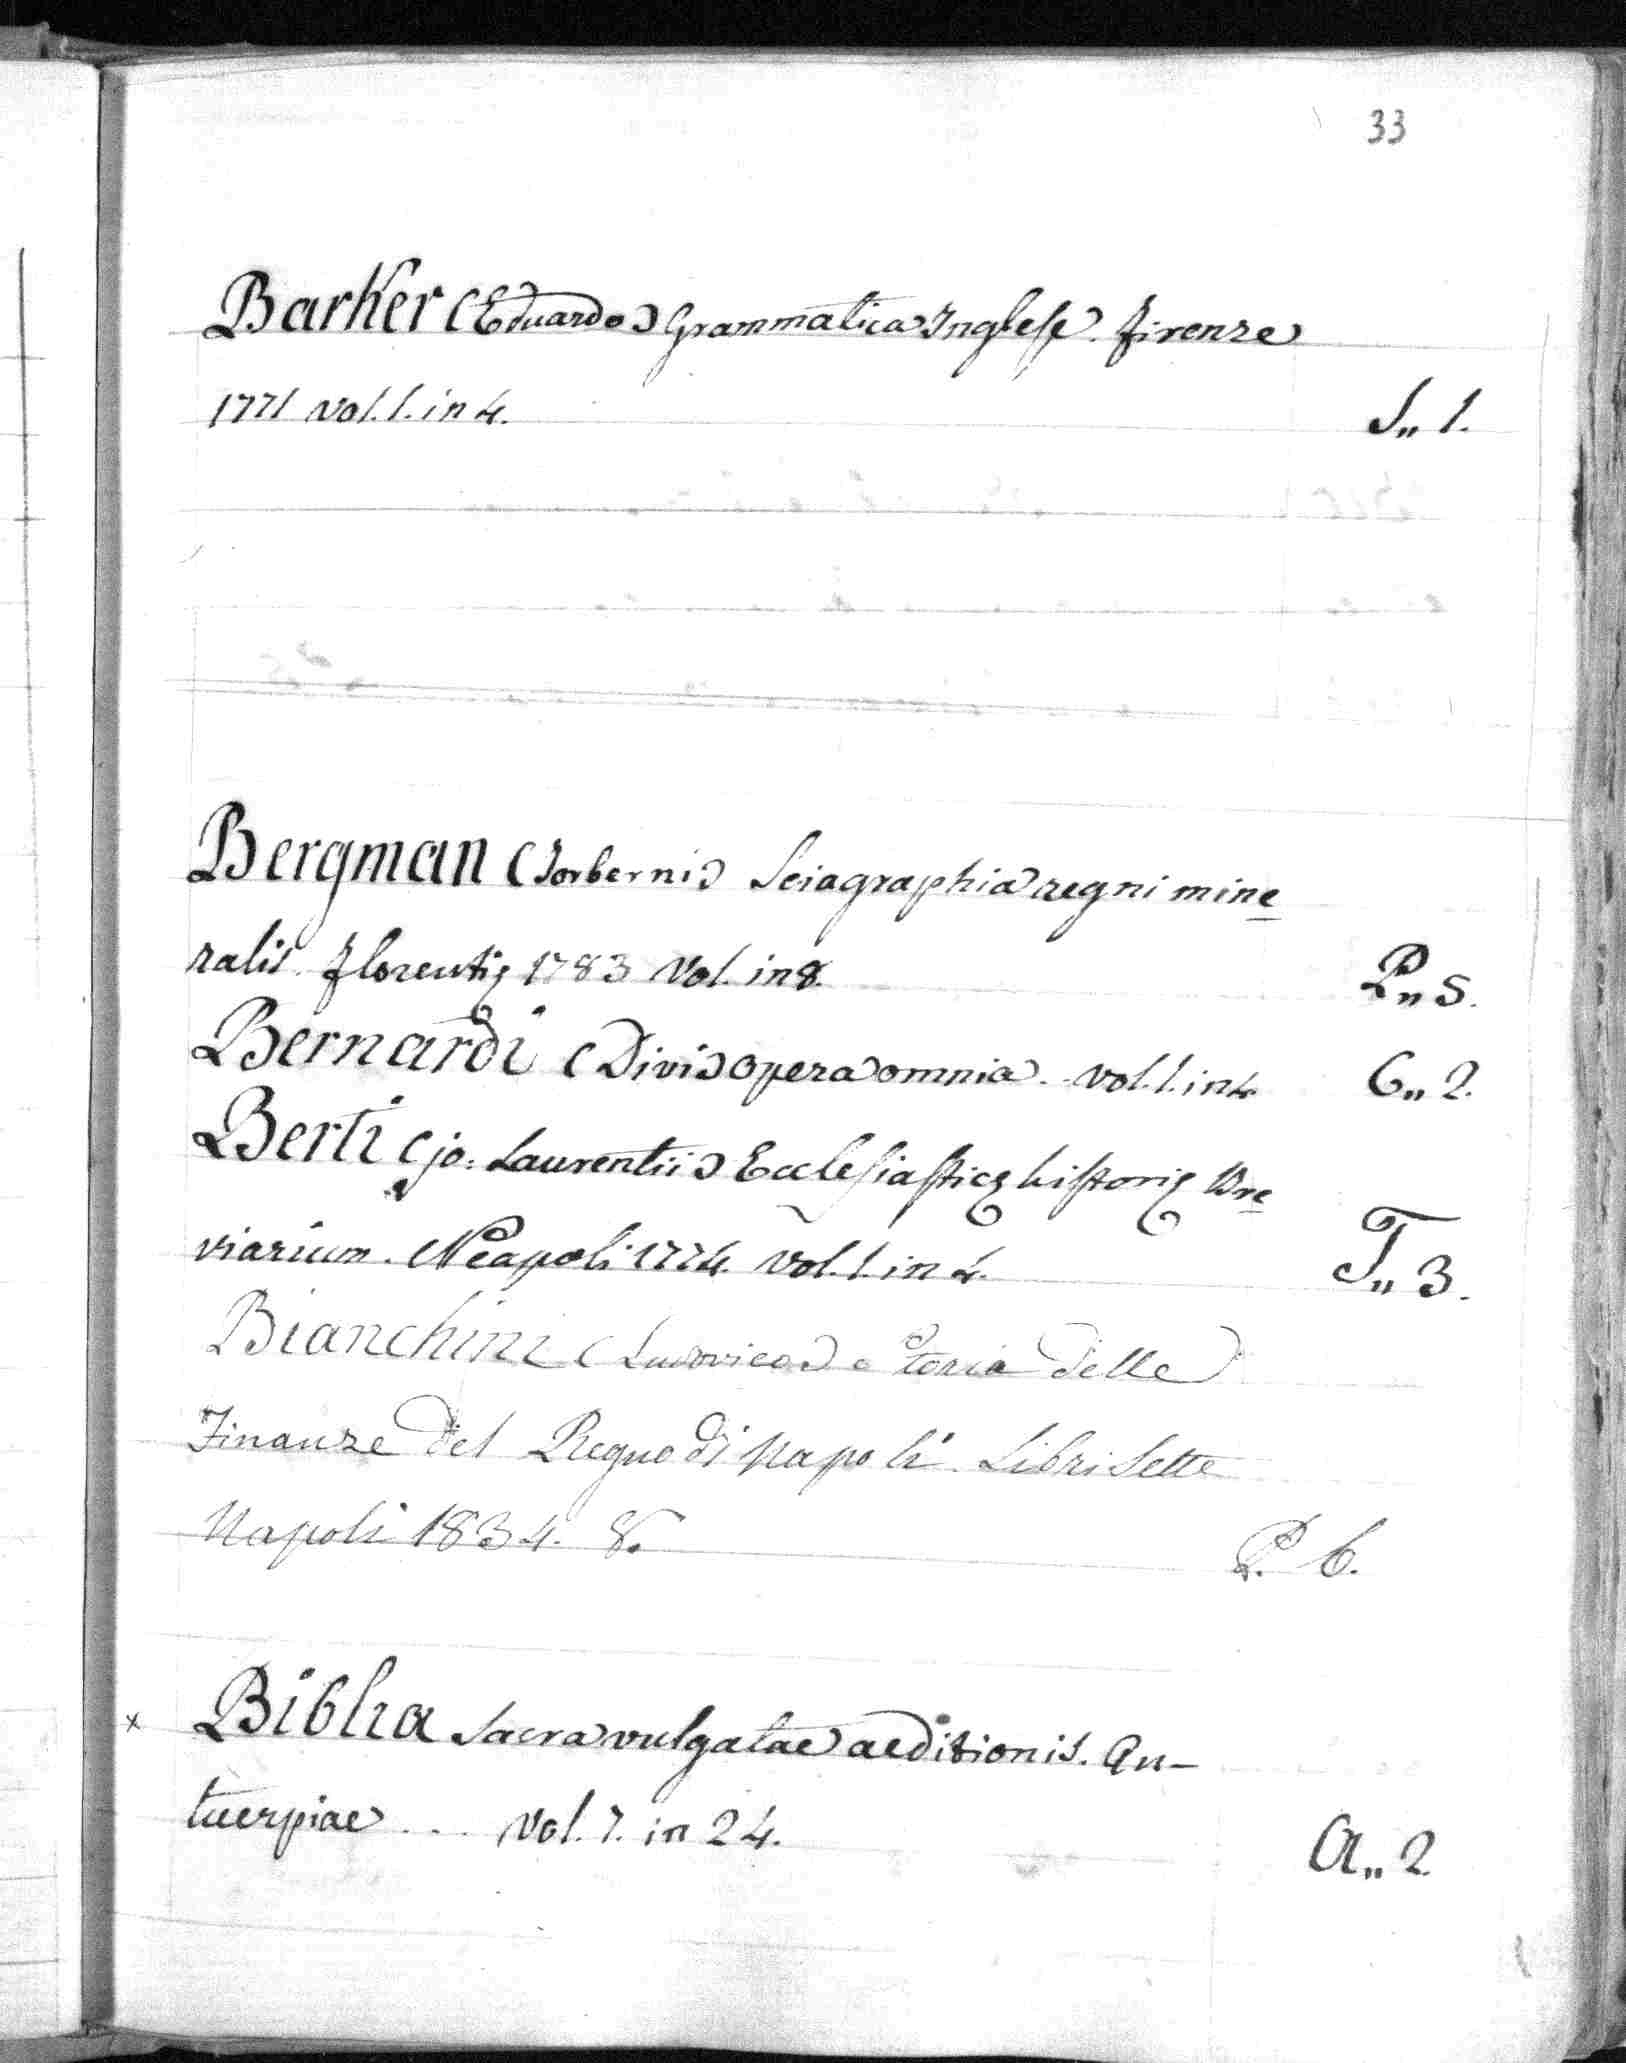 33
Barker (Eduardo) Grammatica Inglese. Firenze
1771 vol. 1. in 4.
S,, 1.
Bergman (Torberni) Sciagraphia regni mine
ralis. Florentię 1783 Vol. in 8.
P,, 5.
Bernardi (Divi) opera omnia. vol. 1. in 4
C,, 2.
Berti (jo: Laurentii) Ecclesiasticę historię Bre
viarium. Neapoli 1774. vol. 1. in 4.
T,, 3.
Bianchini (Ludovico) Storia delle
Finanze del Regno di Napoli. Libri Sette
Napoli 1834. 8.
P. 6.
x Biblia Sacra vulgatae aeditionis. An-
tuerpiae ... Vol. 7. in 24.
A,, 2